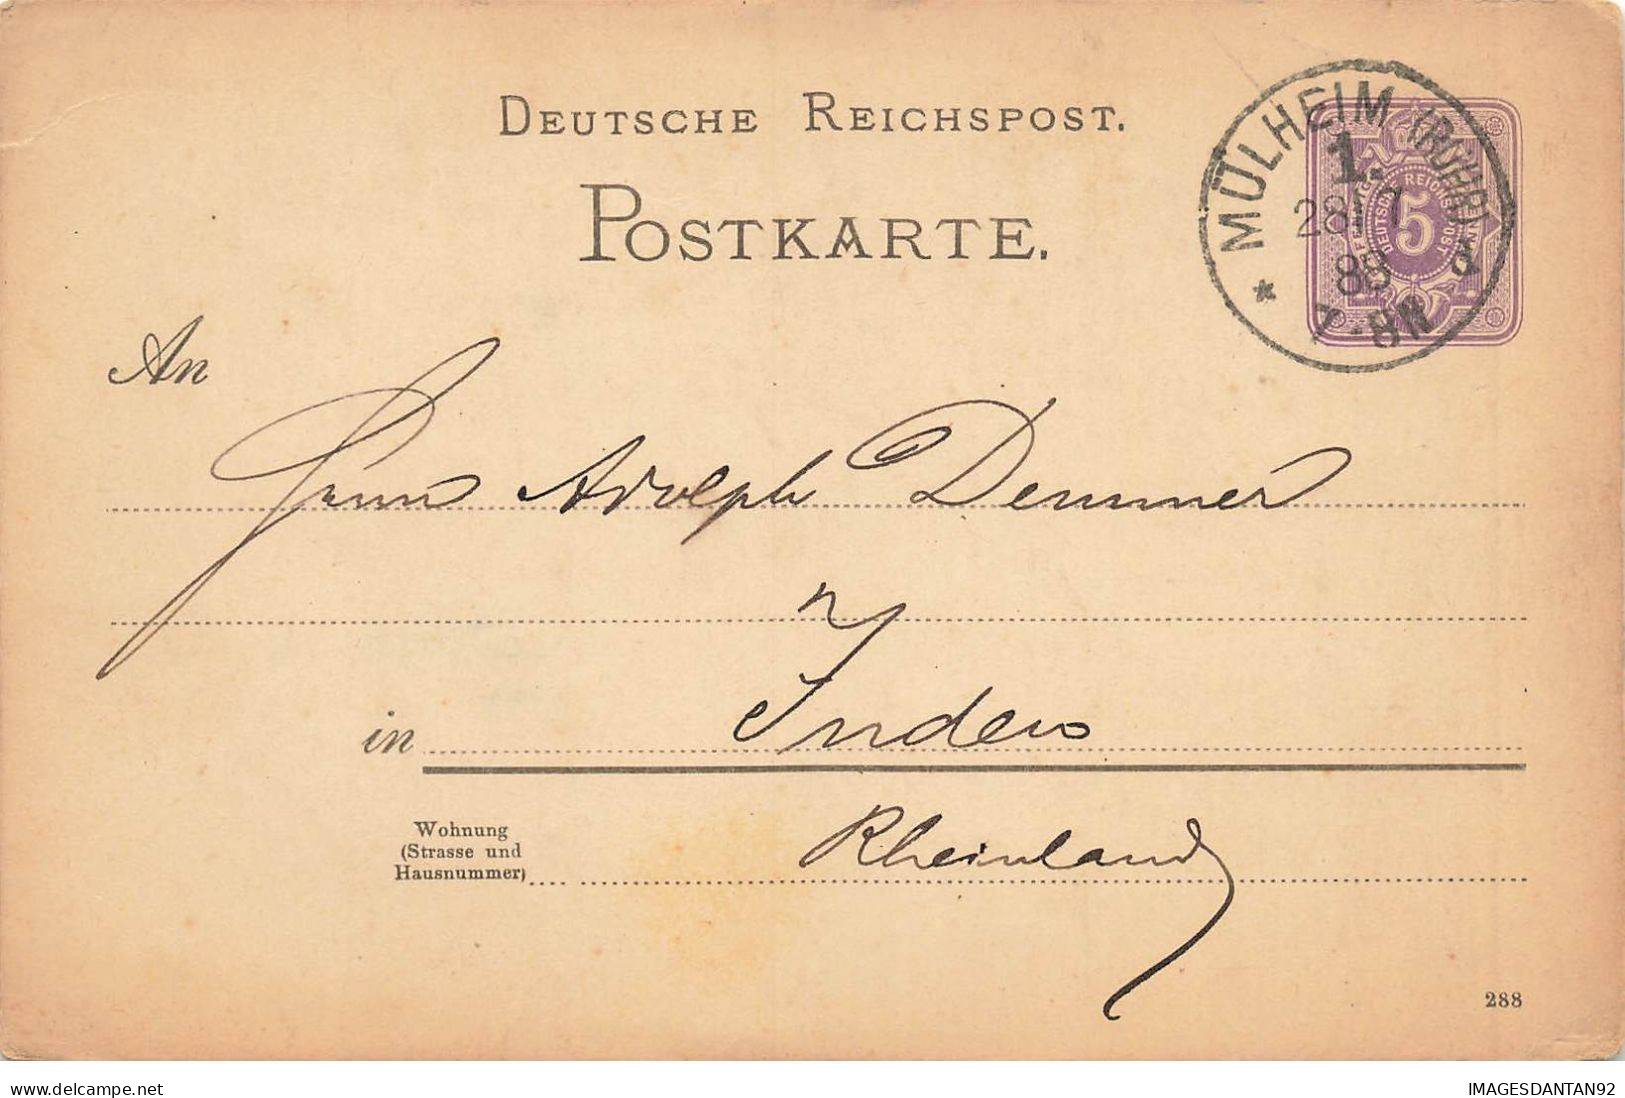 DEUTSCHE REICHSPOST.
POSTKARTE.
MÜLHEIM (RUHR)
1.
28 7
88
7-8N
DEUTSCHE REICHSPOST
5
An
Herrn Adolph Demmer
in Inden
Rheinland
Wohnung
(Strasse und
Hausnummer)
288
www.delcampe.net
IMAGESDANTAN92